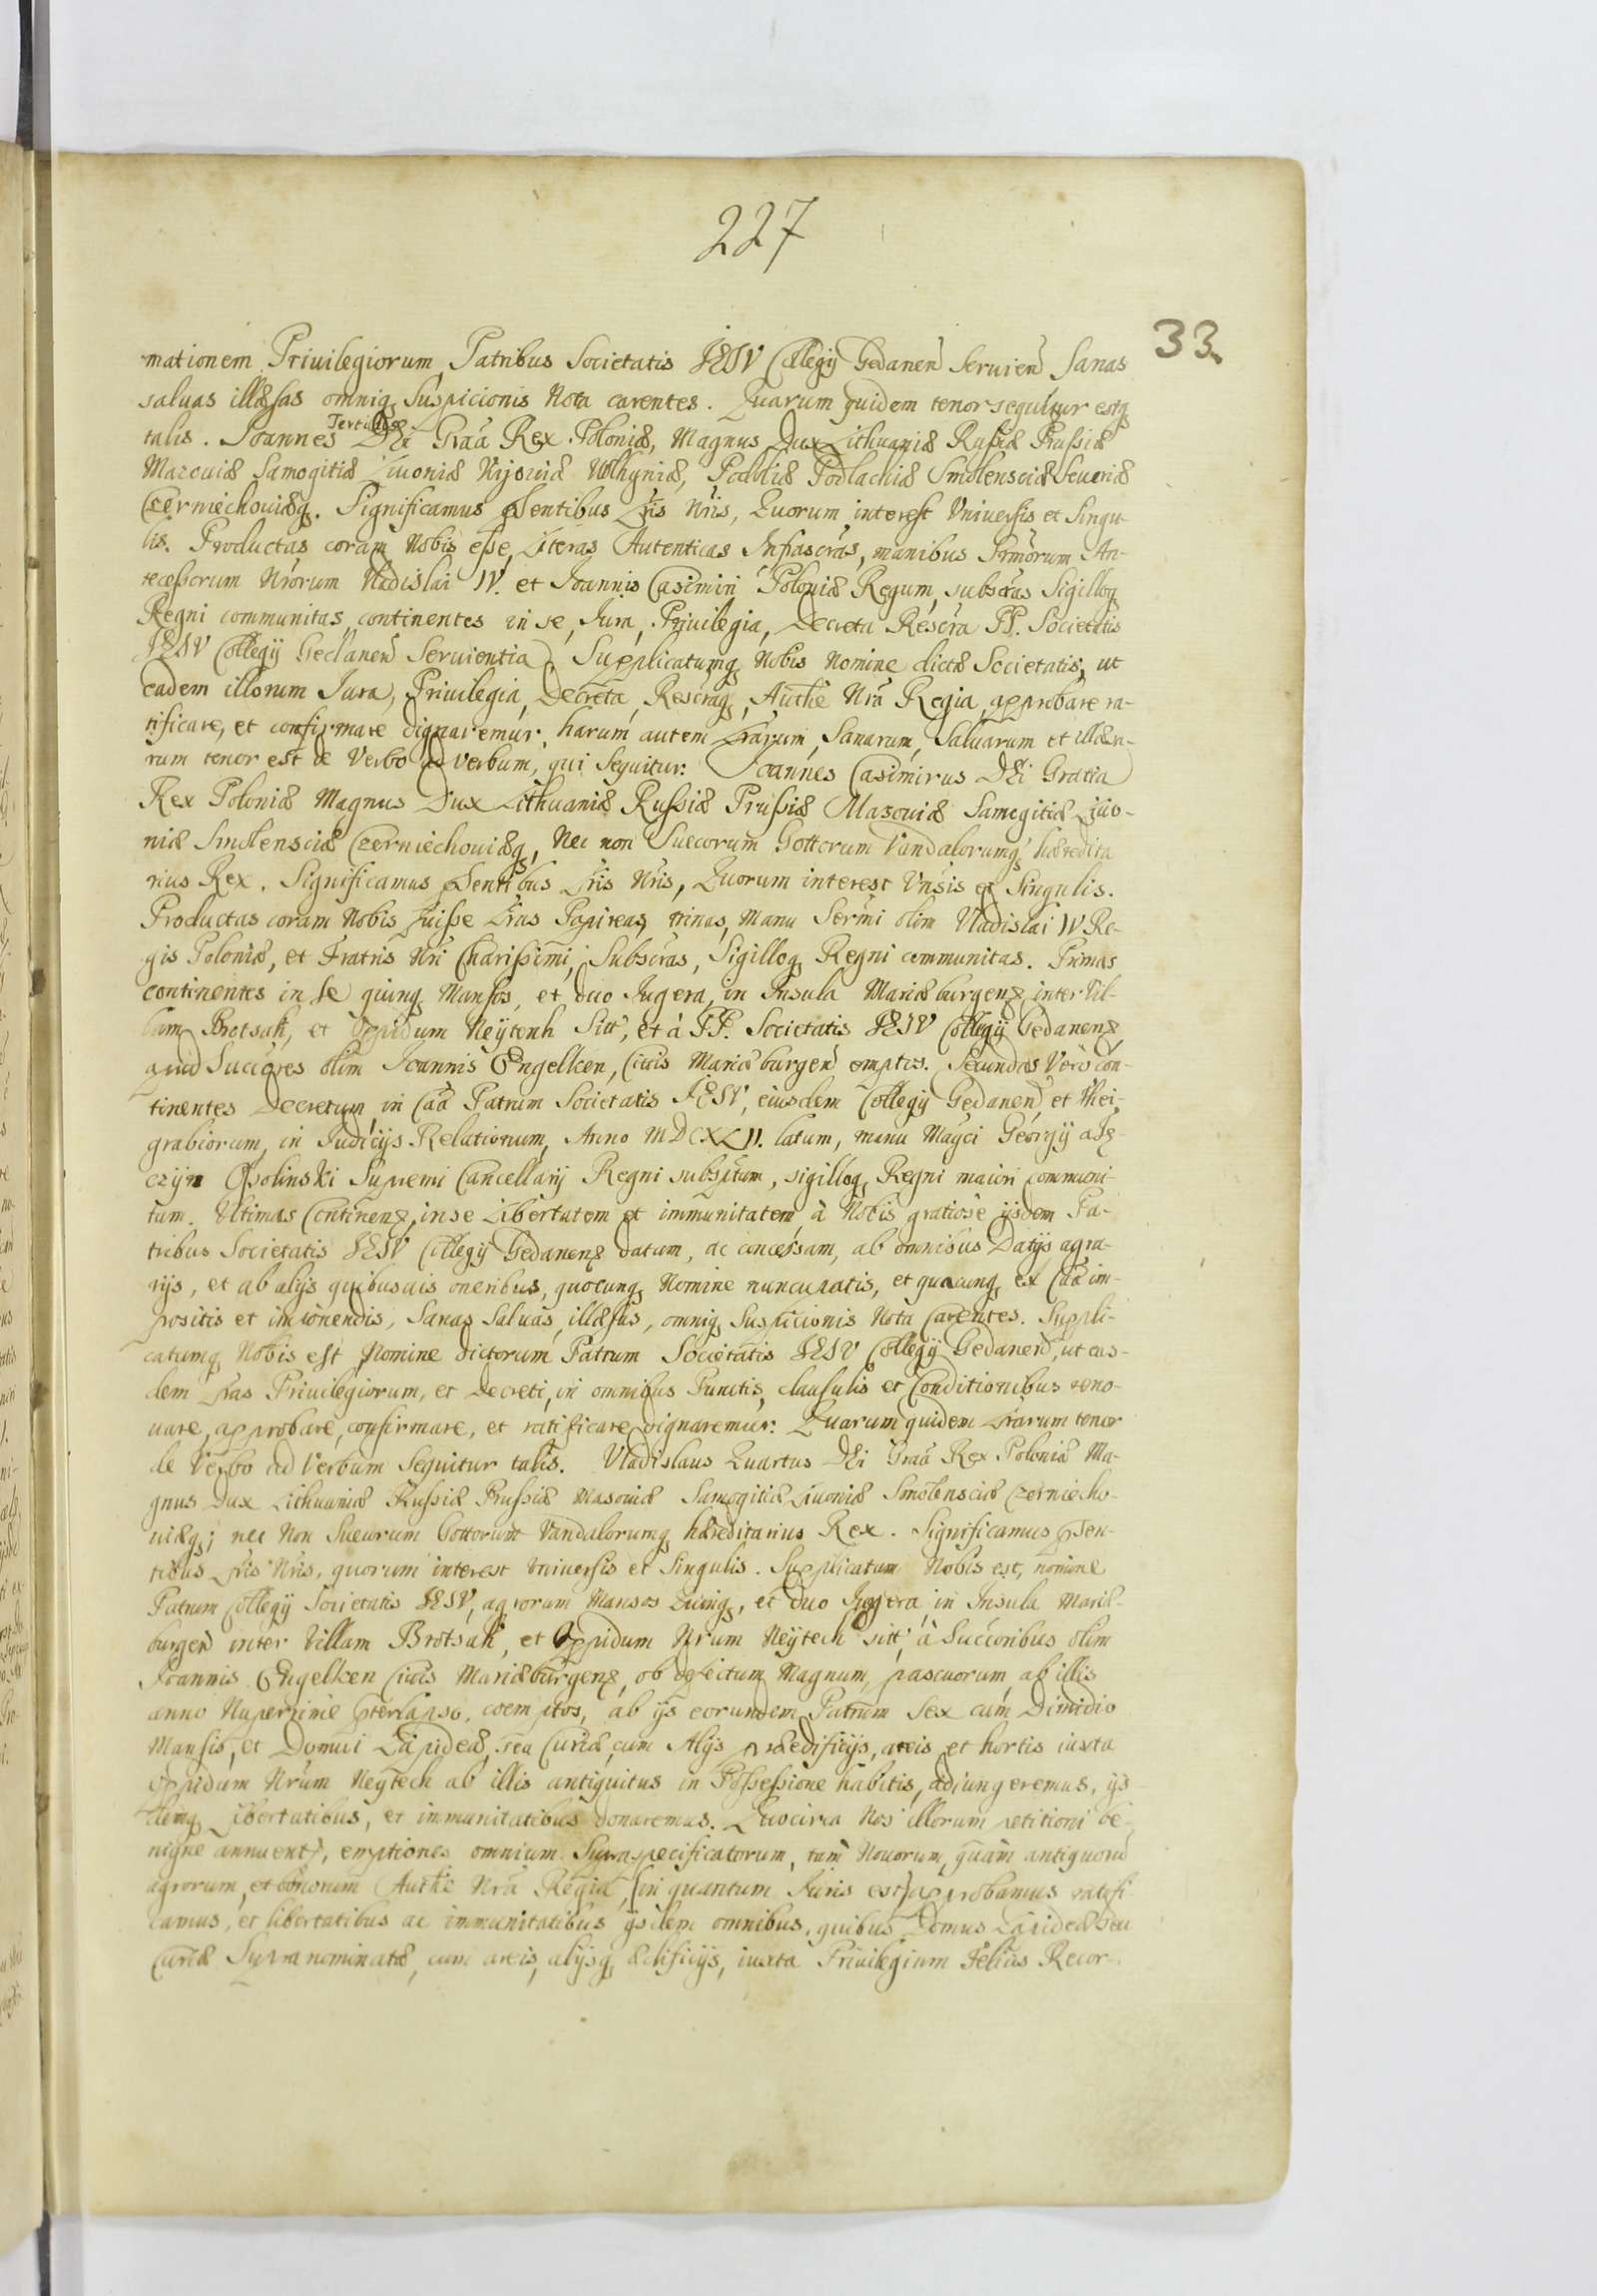 227
33.
mationem Privilegiorum Patribus Societatis JESV Collegij Gedanen̄ Servien̄ Sanas
salvas illæsas omniq, Suspicionis Nota carentes. Quarum quidem tenor sequitur estq,
talis. Joannes Tertius DEi Graã Rex Poloniæ, Magnus Dux Lithuaniæ Russiæ Prussiæ
Mazoviæ Samogitiæ Livoniæ Kijoviæ Volhyniæ, Podoliæ Podlachiæ Smolensciæ Severiæ
Czerniechoviæq. Significamus p̃sentibus Lr̃is Nr̃is, Quorum interest Vniversis et Singu-
lis. Productas coram Nobis esse Literas Autenticas Infascr̃as, manibus Srmorum An-
tecessorum Nr̃orum Vladislai IV. et Joannis Casimiri Poloniæ Regum, subscr̃as Sigilloq,
Regni communitas continentes in se, Jura, Privilegia, Decreta Rescr̃a PP. Societatis
JESV Collegij Gedanen̄ Servientia, Supplicatumq, Nobis Nomine dictæ Societatis, ut
eadem illorum Jura, Privilegia, Decreta, Rescr̃aq, Authẽ Nr̃a Regia approbare ra-
tificare, et confirmare dignaremur, harum autem Lr̃arum, Sanarum, Salvarum et illæsa-
rum tenor est de Verbo ad Verbum, qui sequitur: Joannes Casimirus DEi Gratia
Rex Poloniæ Magnus Dux Lithuaniæ Russiæ Prussiæ Mazoviæ Samogitiæ Livo-
niæ Smolensciæ Czerniechoviæq, Nec non Suecorum Gottorum Vandalorumq, hæredita
rius Rex. Significamus p̃sentibus Lr̃is Nr̃is, Quorum interest Vn̄sis et Singulis.
Productas coram Nobis fuisse Lr̃as Papireas trinas, Manu Ser̃mi olim Vladislai IV Re-
gis Poloniæ, et Fratris Nr̃i Charissimi, Subscr̃as, Sigilloq, Regni communitas. Primas
continentes in se quinq, Mansos, et duo Jugera, in Insula Mariæburgenꝫ inter Vil-
lam Brotsak, et Oppidum Neytenh Sitt̃, et à PP. Societatis JESV Collegij Gedanenꝫ
apud Succ̃ores olim Joannis Engelken, Civis Mariæburgen̄ emptis. Secundas Verò con-
tinentes Decretum in Caã Patrum Societatis JESV, eiusdem Collegij Gedanen̄, et thei-
grabiorum, in Judicijs Relationum, Anno MDCXLII. latum, manu Magci Georgij a Tę-
czyn Ossolinski Supremi Cancellarij Regni subscr̃tum, sigilloq, Regni maiori communi-
tum. Vltimas Continenꝫ, inse Libertatem et immunitatem à Nobis gratiose ijsdem Pa-
tribus Societatis JESV Collegij Gedanenꝫ datam, ac concessam, ab omnibus Datijs agra-
rijs, et ab alijs quibusvis oneribus, quocunq, Nomine nuncupatis, et quacunq, ex Caã im-
positis et imponendis, Sanas Salvas, illæsas, omniq, Suspicionis Nota Carentes. Suppli-
catumq, Nobis est Nomine dictorum Patrum Societatis JESV Collegij Gedanen̄, ut eas-
dem Lr̃as Privilegiorum, et Decreti, in omnibus Punctis, clausulis et Conditionibus reno-
vare, approbare, confirmare, et ratificare dignaremur: Quarum quidem Lr̃arum tenor
de Verbo ad Verbum Sequitur talis. Vladislaus Quartus DEi Graã Rex Poloniæ Ma-
gnus Dux Lithuaniæ Russiæ Prussiæ Masoviæ Samogitiæ Livoniæ Smolensciæ Czerniecho-
viæq; nec Non Suevorum Gottorum Vandalorumq, hæreditarius Rex. Significamus p̃sen-
tibus Lr̃is Nr̃is, quorum interest Vniversis et Singulis. Supplicatum Nobis est, nomine
Patrum Collegij Societatis JESV, agrorum Mansos Quinq, et duo Jugera in Insula Mariæ-
burgen̄ inter Villam Brotsak, et Oppidum Nr̃um Neytech sitt̃, à Succ̃oribus olim
Joannis Engelken Civis Mariæburgenꝫ, ob defectum Magnum, pascuorum, ab illis
anno Nuperrime p̃terlapso, coemptos, ab ijs eorundem Patrum Sex cum Dimidio
Mansis, et Domui Lapideæ, seu Curiæ, cum Alijs ædificijs, areis et hortis iuxta
Oppidum Nr̃um Neytech ab illis antiquitus in Possessione habitis, adiungeremus, ijs-
demq, Libertatibus, et immunitatibus donaremus. Quocirca Nos illorum petitioni be-
nigne annuentꝫ, emptiones omnium Supraspecificatorum, tam Novorum, quàm antiquorũ
agrorum, et bonorum Authẽ Nr̃a Regia, [in quantum Juris est] approbamus ratifi
camus, et libertatibus ac immunitatibus ijsdem omnibus, quibus Domus Lapidea seu
Curiæ Supra nominatæ, cum areis, alijsq, ædificijs, iuxta Privilegium Felicis Recor-